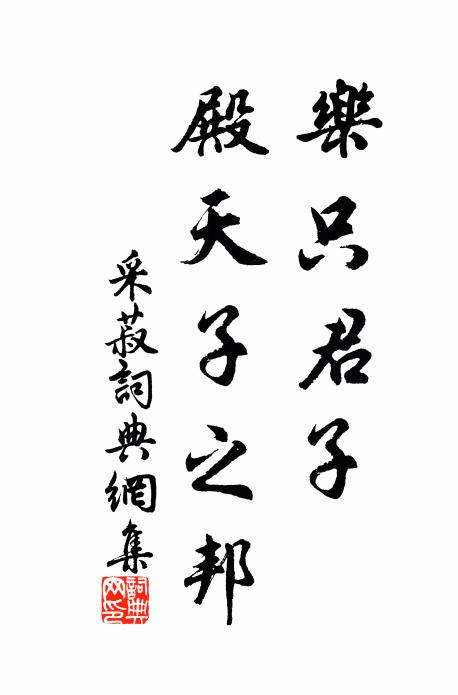 樂只君子
殿天子之邦
采菽詞典網集
詞典网印